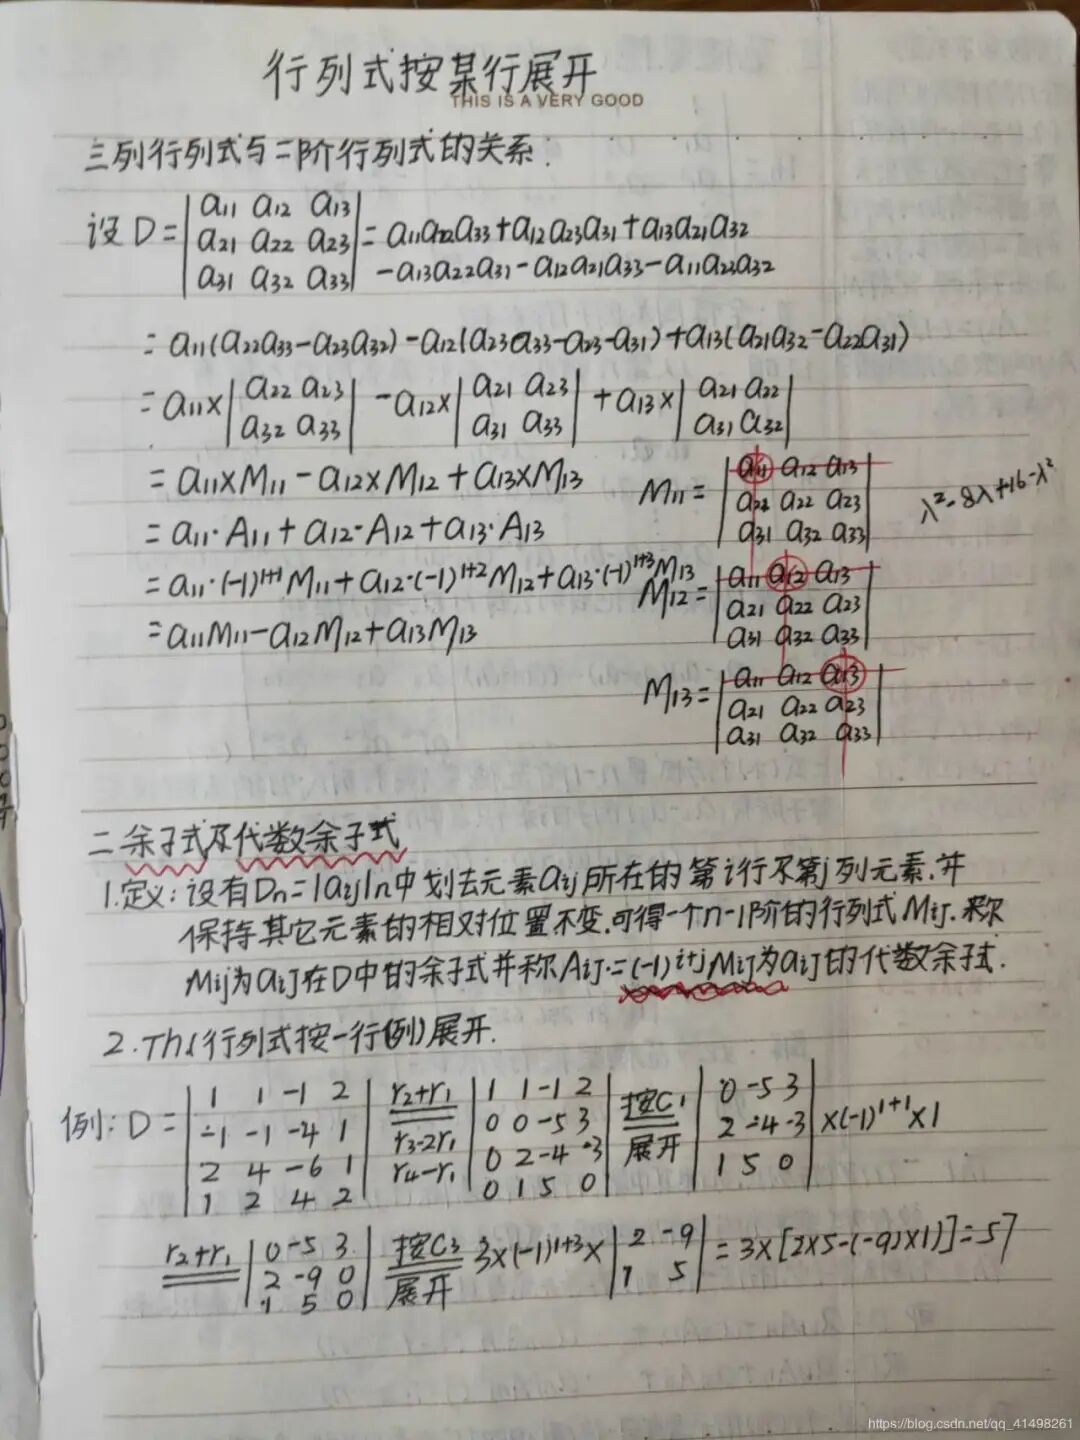 行列式按某行展开
THIS IS A VERY GOOD
三列行列式与二阶行列式的关系.
设 D = | a11 a12 a13 | = a11a22a33+a12a23a31+a13a21a32
| a21 a22 a23 |
| a31 a32 a33 | -a13a22a31-a12a21a33-a11a23a32
= a11(a22a33-a23a32)-a12(a23a33-a23-a31)+a13(a21a32-a22a31)
= a11× | a22 a23 | -a12× | a21 a23 | +a13× | a21 a22 |
| a32 a33 | | a31 a33 | | a31 a32 |
= a11×M11 - a12×M12 + a13×M13
= a11·A11 + a12·A12 + a13·A13
= a11·(-1)^1+1 M11 + a12·(-1)^1+2 M12 + a13·(-1)^1+3 M13
= a11M11-a12M12+a13M13
M11 = | a11 a12 a13 |
| a21 a22 a23 |
| a31 a32 a33 |
λ²-8λ+16-λ²
M12 = | a11 a12 a13 |
| a21 a22 a23 |
| a31 a32 a33 |
M13 = | a11 a12 a13 |
| a21 a22 a23 |
| a31 a32 a33 |
二 余子式及代数余子式
1.定义: 设有Dn=|aij|n中划去元素aij所在的第i行不第j列元素.并
保持其它元素的相对位置不变.可得一个n-1阶的行列式Mij.来称
Mij为aij在D中的余子式并称Aij.=(-1)^i+j Mij为aij的代数余子式.
2.Th1(行列式按一行(列)展开.
例: D = | 1 1 -1 2 | r2+r1 | 1 1 -1 2 | 按C1 | 0 -5 3 |
| -1 -1 -4 1 | r3-2r1 | 0 0 -5 3 | 展开 | 2 -4 -3 | ×(-1)^1+1 ×1
| 2 4 -6 1 | r4-r1 | 0 2 -4 -3 | | 1 5 0 |
| 1 2 4 2 | | 0 1 5 0 |
r2+r1 | 0 -5 3 | 按C3 3×(-1)^1+3 × | 2 -9 | = 3×[2×5-(-9)×1)]=57
| 2 -9 0 | 展开 | 1 5 |
| 1 5 0 |
https://blog.csdn.net/qq_41498261